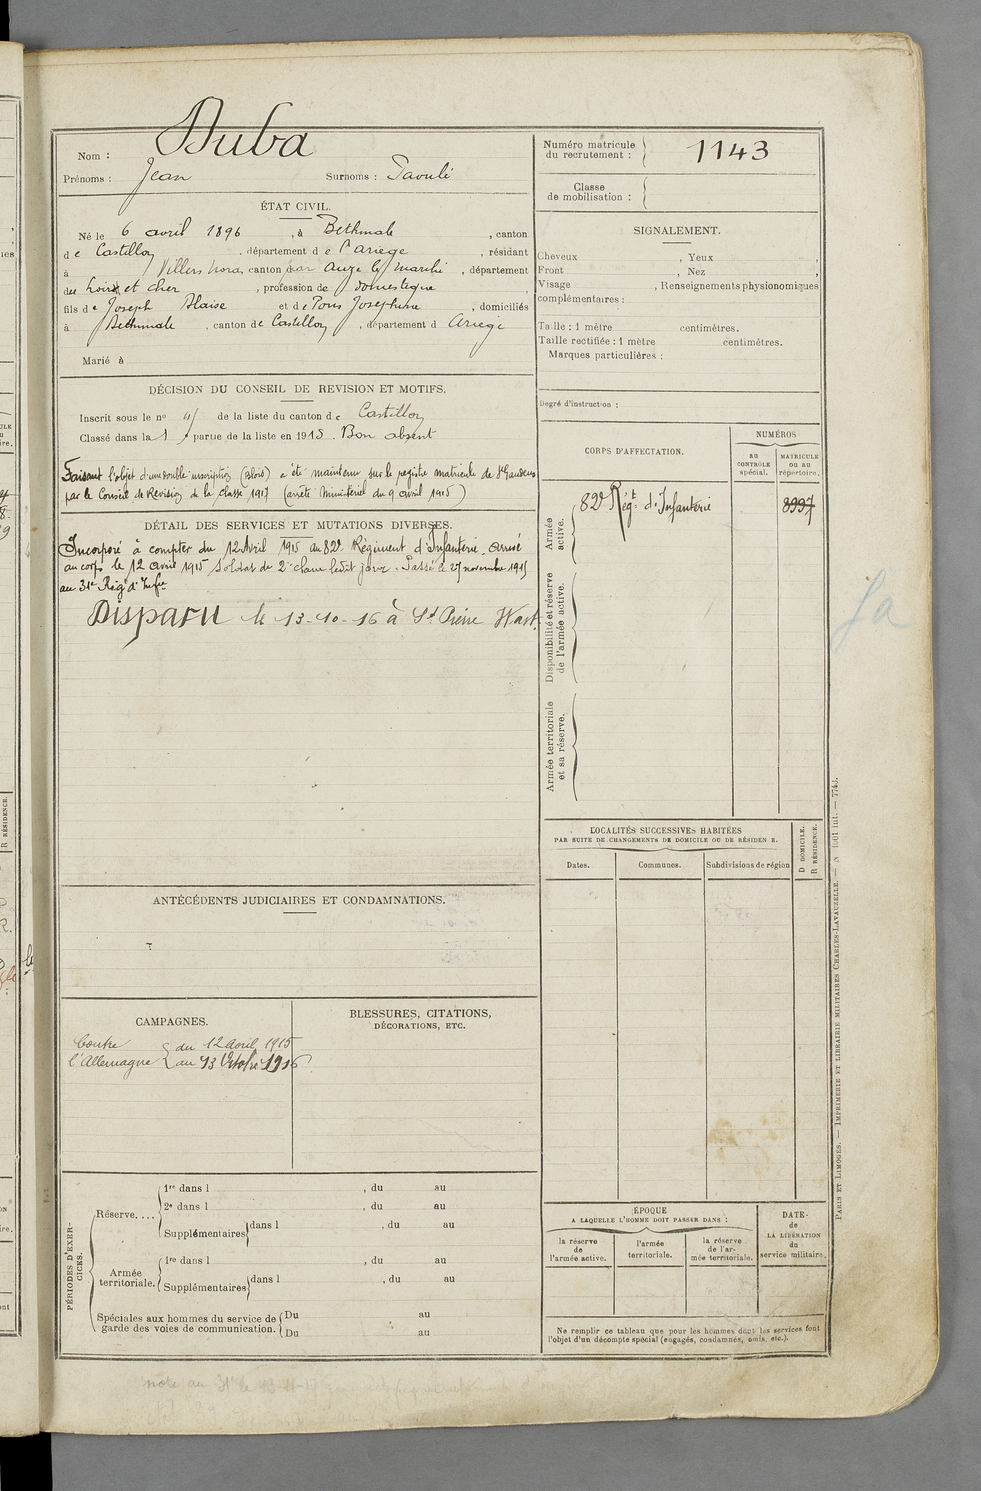 Nom : Duba
Prénoms : Jean Surnoms : Paoulé
ÉTAT CIVIL.
Né le 6 avril 1896, à Bethmale, canton
de Castillon, département de l'Ariège, résidant
à Villers, canton, département
du Loir et Cher, profession de domestique,
fils de Joseph Blaise et de Pons Josephine, domiciliés
à Bethmale, canton de Castillon, département d Ariège
Marié à
DÉCISION DU CONSEIL DE REVISION ET MOTIFS.
Inscrit sous le nº 41 de la liste du canton de Castillon
Classé dans la 1 partie de la liste en 1915. Bon absent
Faisant l'objet d'une double inscription (Blois) a été maintenu sur le registre matricule de St Gaudens
par le Conseil de Revision de la classe 1917 (arrêté Ministériel du 9 avril 1915)
DÉTAIL DES SERVICES ET MUTATIONS DIVERSES.
Incorporé à compter du 12 Avril 1915 au 82e Régiment d'Infanterie. Arrivé
au corps le 12 avril 1915 Soldat de 2e classe ledit jour. Passé le 27 novembre 1915
au 31e Rég d'Infie
Disparu le 13-10-16 à St Pierre Wast.
ANTÉCÉDENTS JUDICIAIRES ET CONDAMNATIONS.
CAMPAGNES.
Contre { du 12 avril 1915
l'Allemagne { au 13 Octobre 1916
BLESSURES, CITATIONS,
DÉCORATIONS, ETC.
PÉRIODES D'EXERCICES.
Réserve....
1re dans l , du au
2e dans l , du au
Supplémentaires dans l , du au
Armée territoriale.
1re dans l , du au
Supplémentaires dans l , du au
Spéciales aux hommes du service de garde des voies de communication.
Du au
Du au
Numéro matricule du recrutement : 1143
Classe de mobilisation :
SIGNALEMENT.
Cheveux , Yeux
Front , Nez ,
Visage , Renseignements physionomiques
complémentaires :
Taille : 1 mètre centimètres.
Taille rectifiée : 1 mètre centimètres.
Marques particulières :
Degré d'instruction :
CORPS D'AFFECTATION.
NUMÉROS
AU CONTRÔLE spécial.
MATRICULE ou au répertoire.
Armée active.
82e Régt d'Infanterie
8997
Disponibilité et réserve de l'armée active.
Armée territoriale et sa réserve.
LOCALITÉS SUCCESSIVES HABITÉES
PAR SUITE DE CHANGEMENTS DE DOMICILE OU DE RÉSIDEN E.
D DOMICILE.
R RÉSIDENCE.
Dates. Communes. Subdivisions de région
ÉPOQUE
A LAQUELLE L'HOMME DOIT PASSER DANS :
la réserve de l'armée active.
l'armée territoriale.
la réserve de l'armée territoriale.
DATE
de
LA LIBÉRATION
du
service militaire.
Ne remplir ce tableau que pour les hommes dont les services font
l'objet d'un décompte spécial (engagés, condamnés, omis, etc.).
PARIS ET LIMOGES. — IMPRIMERIE ET LIBRAIRIE MILITAIRES CHARLES-LAVAUZELLE.